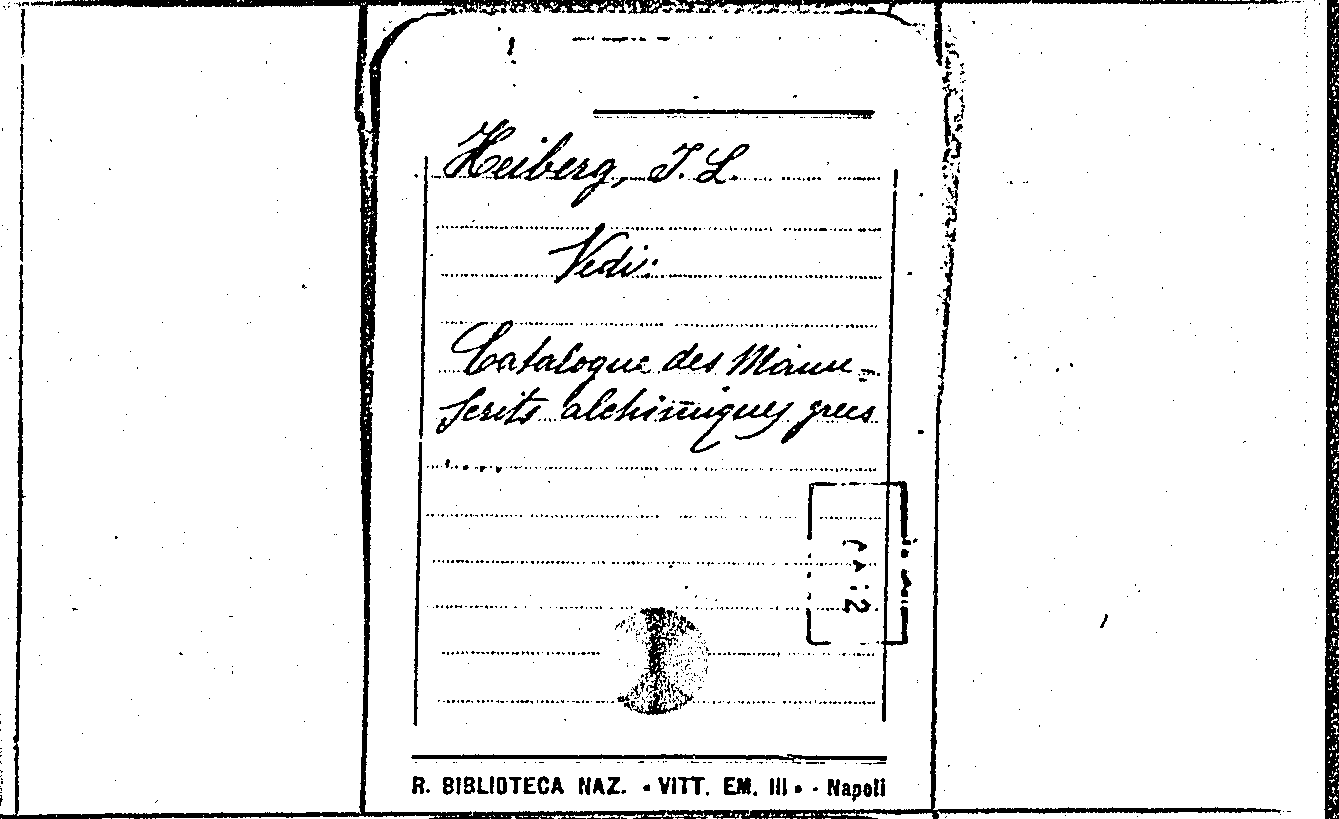 Heiberg, J. L.
Vedi:
Catalogue des Manu-
scrits alchimiques grecs
....
R. BIBLIOTECA NAZ. « VITT. EM. III » - Napoli